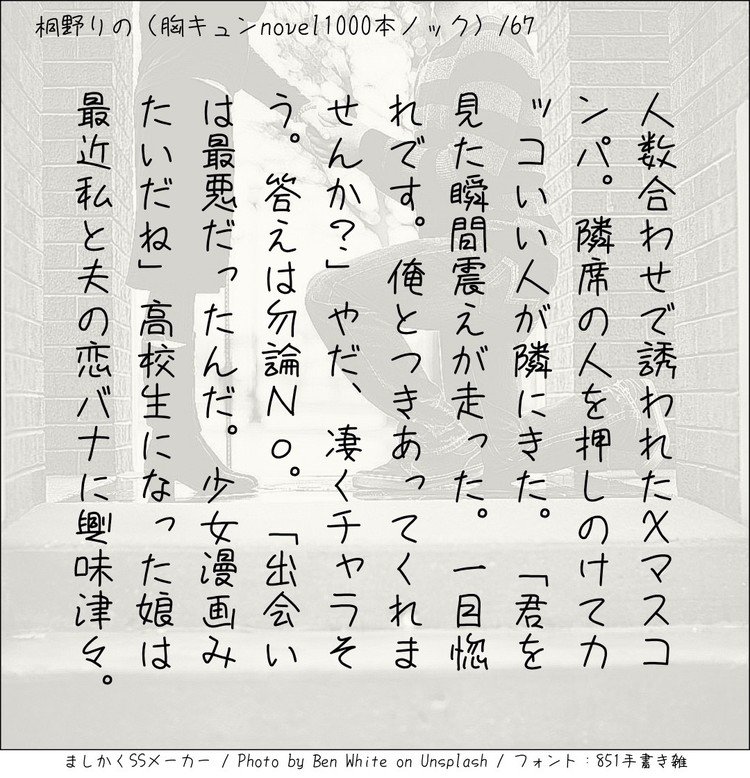 桐野りの（胸キュンnovel1000本ノック）/67
人数合わせで誘われたXマスコ
ンパ。隣席の人を押しのけてカ
ッコいい人が隣にきた。「君を
見た瞬間震えが走った。一目惚
れです。俺とつきあってくれま
せんか？」やだ、凄くチャラそ
う。答えは勿論No。「出会い
は最悪だったんだ。少女漫画み
たいだね」高校生になった娘は
最近私と夫の恋バナに興味津々。
ましかくSSメーカー / Photo by Ben White on Unsplash / フォント：851手書き雑